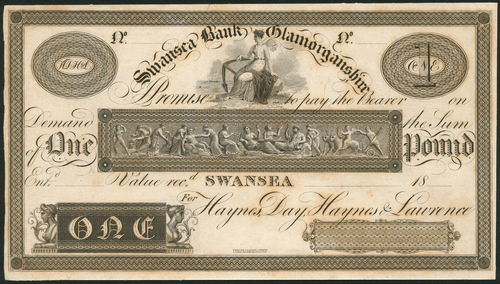 No. No.
Swansea Bank Glamorganshire
1
ONE
I Promise to pay the Bearer on
Demand the Sum
of One Pound
Ent.d Value rec.d SWANSEA 18
For Haynes, Day, Haynes & Lawrence
ONE